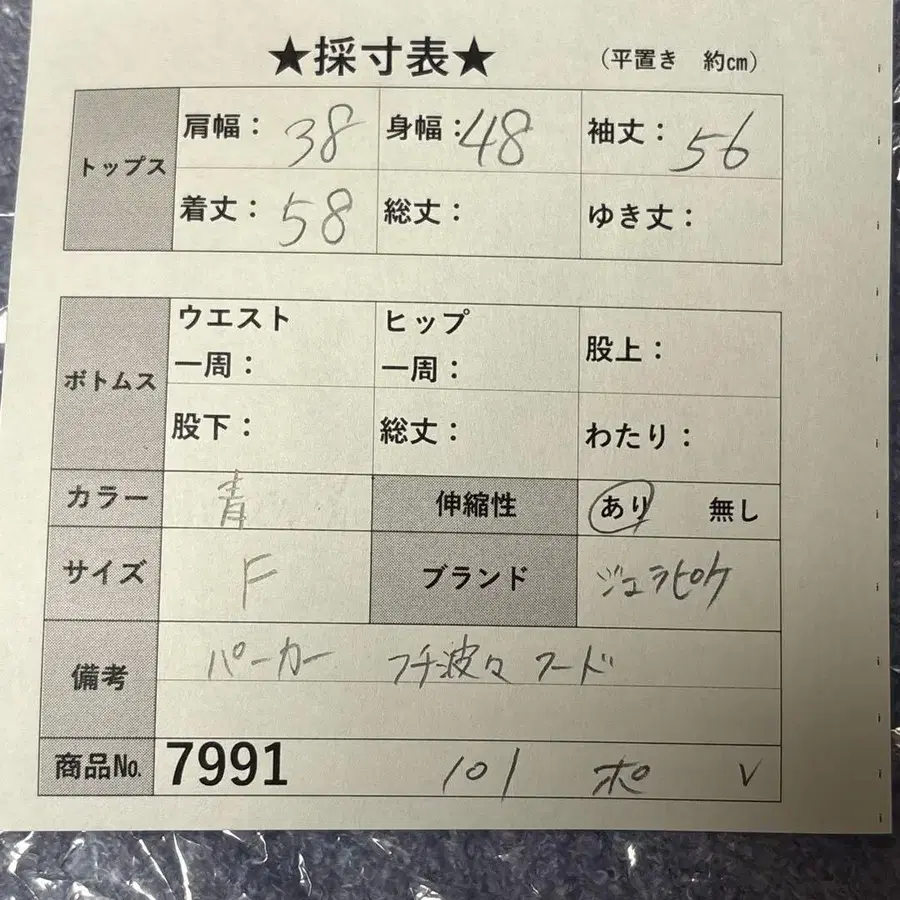 ★採寸表★ (平置き 約㎝)
トップス
肩幅： 38 身幅：48 袖丈： 56
着丈： 58 総丈： ゆき丈：
ボトムス
ウエスト一周： ヒップ一周： 股上：
股下： 総丈： わたり：
カラー 青 伸縮性 あり 無し
サイズ F ブランド ジェラピケ
備考 パーカー フチ波々 フード
商品No. 7991 101 ポ V